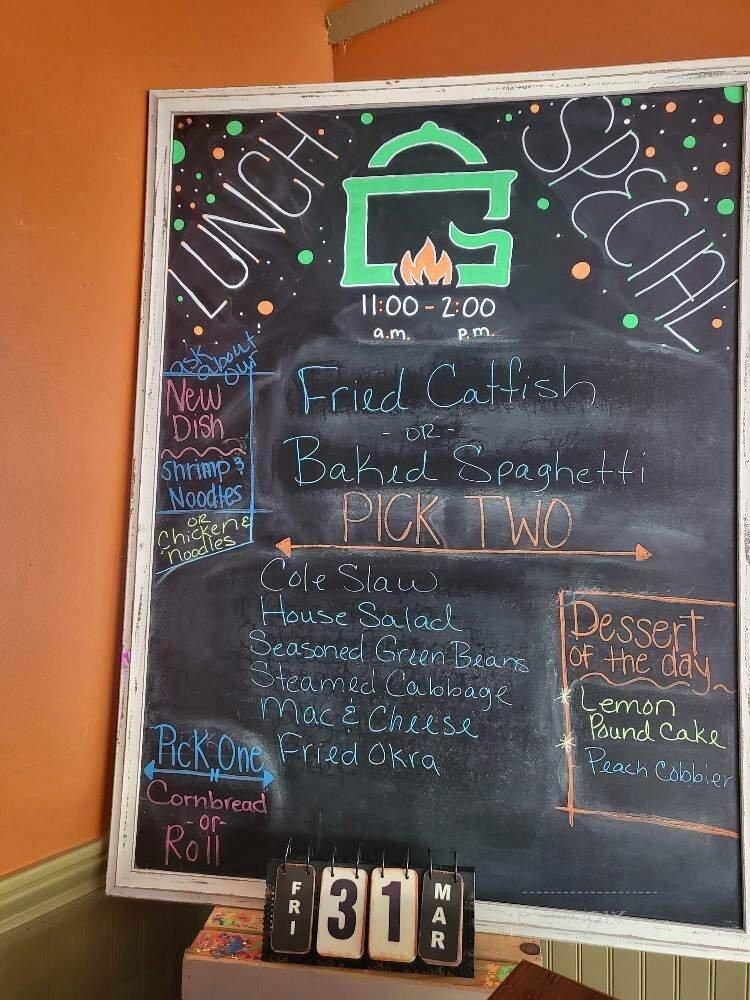 LUNCH SPECIAL
11:00 - 2:00
a.m. p.m.
ask about our
New
Dish
Shrimp &
Noodles
OR
Chicken &
Noodles
Fried Catfish
- OR -
Baked Spaghetti
PICK TWO
Cole Slaw
House Salad
Seasoned Green Beans
Steamed Cabbage
Mac & Cheese
Fried Okra
Pick One
Cornbread
- or -
Roll
Dessert
of the day
* Lemon
Pound Cake
* Peach Cobbler
FRI 31 MAR